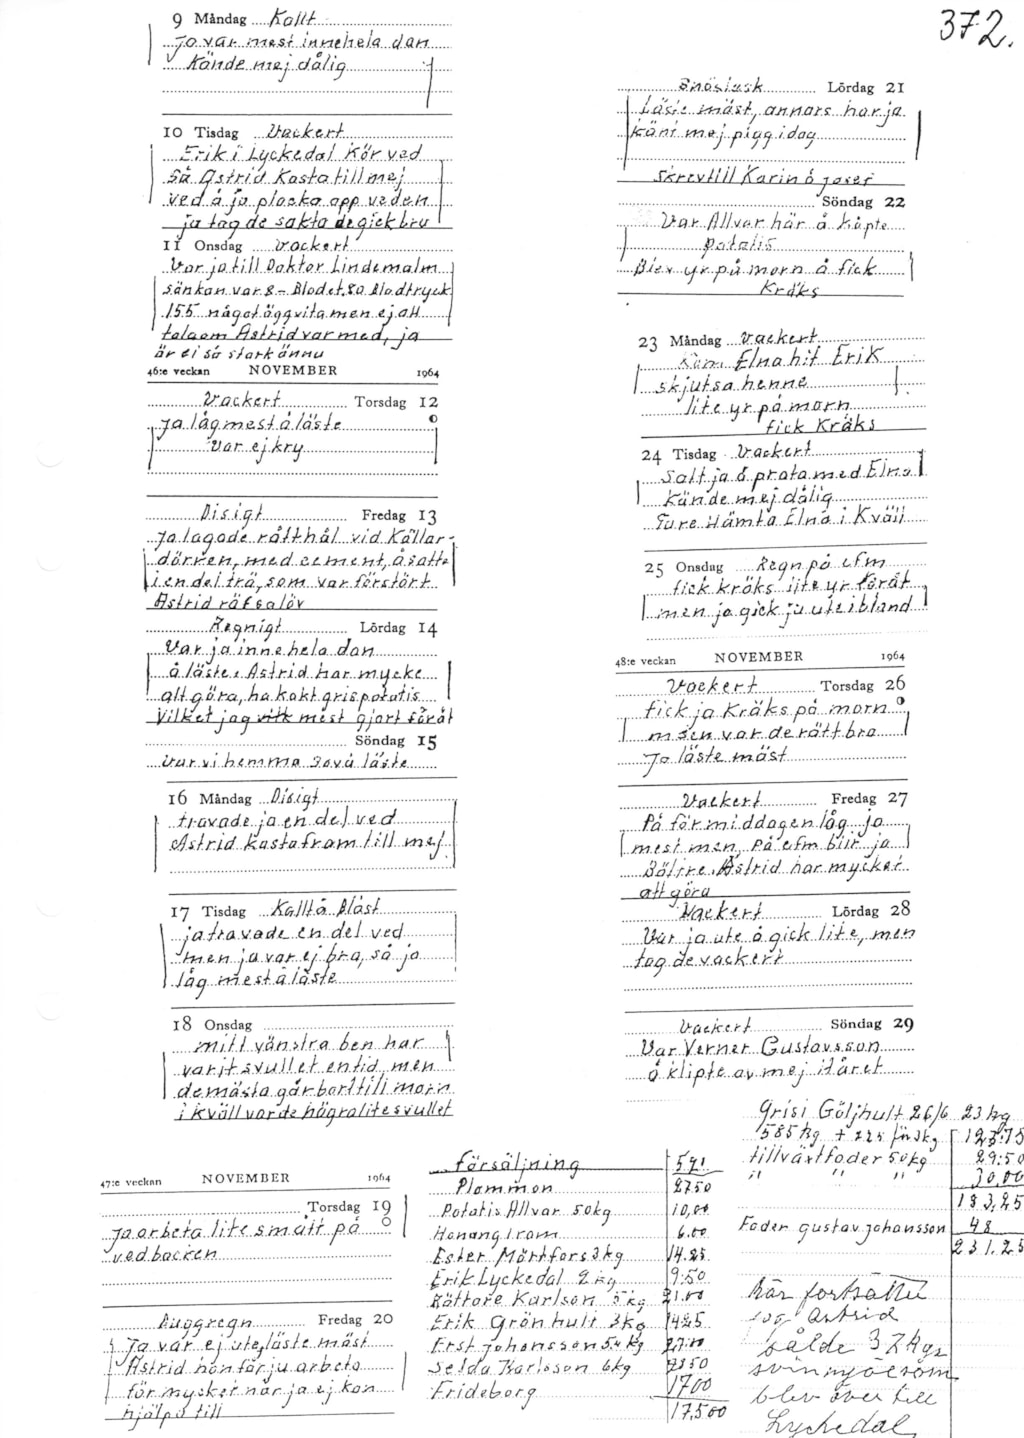 372.
9 Måndag Kallt
Jo var mest inne hela dan
Kände mej dålig
10 Tisdag Vackert
Erik i Lyckedal Kör ved
Så Astrid Kasta till mej
ved å ja plocka opp veden
ja tog de sakta de gick bra
11 Onsdag Vackert
Var ja till Doktor Lindemalm
sänkan var 8 - Blodet 80 Blodtryck
155 något äggvita men ej att
tala om Astrid var med, ja
är ei så stark ännu
46:e veckan NOVEMBER 1964
Vackert Torsdag 12
Ja låg mest å läste
Var ej kry
Disigt Fredag 13
Ja lagade rått hål vid Källar-
dörren, med cement, å satte
i en del trä, som var förstört
Astrid räfsa löv
Regnigt Lördag 14
Var ja inne hela dan
å läste. Astrid har mycke
att göra, ha kokt grispotatis
Vilket jag mest gjort föråt
Söndag 15
Var vi hemma Sova läste
16 Måndag Disigt
travade ja en del ved
Astrid kasta fram till mej
17 Tisdag Kallt å Blåst
ja travade en del ved
men ja var ej bra, så ja
låg mest å läste
18 Onsdag
mitt vänstra ben har
varit svullet en tid men
de mästa går bort till morn
i kväll var de högra lite svullet
47:e veckan NOVEMBER 1964
Torsdag 19
Ja arbeta lite smått på
vedbacken
Duggregn Fredag 20
Ja var ej ute, läste mäst
Astrid hon får ju arbeta
för mycket när ja ej kan
hjälpa till
Snöslask Lördag 21
Läste mäst, annars har ja
känt mej pigg i dag
Skrev till Karin å
Söndag 22
Var Allvar här å köpte
Potatis
Blev yr på morn å fick
Kräks
23 Måndag Vackert
Kom Elna hit Erik
skjutsa henne
lite yr på morn
fick Kräks
24 Tisdag Vackert
Satt ja å prata med Elna
Kände mej dålig
Ture Hämta Elna i Kväll
25 Onsdag Regn på efm
fick kräks lite yr föråt
men ja gick ju ute ibland
48:e veckan NOVEMBER 1964
Vackert Torsdag 26
fick ja Kräks på morn
men var de rätt bra
Ja läste mäst
Vackert Fredag 27
På förmiddagen låg ja
mest men På efm blir ja
Bättre. Astrid har mycket
att göra
Vackert Lördag 28
Var ja ute å gick lite, men
tog de vackert
Vackert Söndag 29
Var Verner Gustavsson
å klipte av mej Håret
försäljning 571
Plommon 27.50
Potatis Allvar 50kg 10,00
Honong 1 rom 6.00
Ester Mörtfors 3kg 14.25
Erik Lyckedal 2 kg 9:50
Rättare Karlson 5 kg 21.00
Erik Grönhult 3kg 14.25
Erst Johansson 5 kg
Selda Karlsson 6kg
Frideborg 17.00
17,5.00
Grisi Göljhult 26/6 23 kg
585 kg
tillväxtfoder 50kg 29:50
" " " 30,00
183,25
Foder Gustav Johansson 48
231.25
Här fortsätter
Astrid
sålde 37 kgr
blev över till
Lyckedal